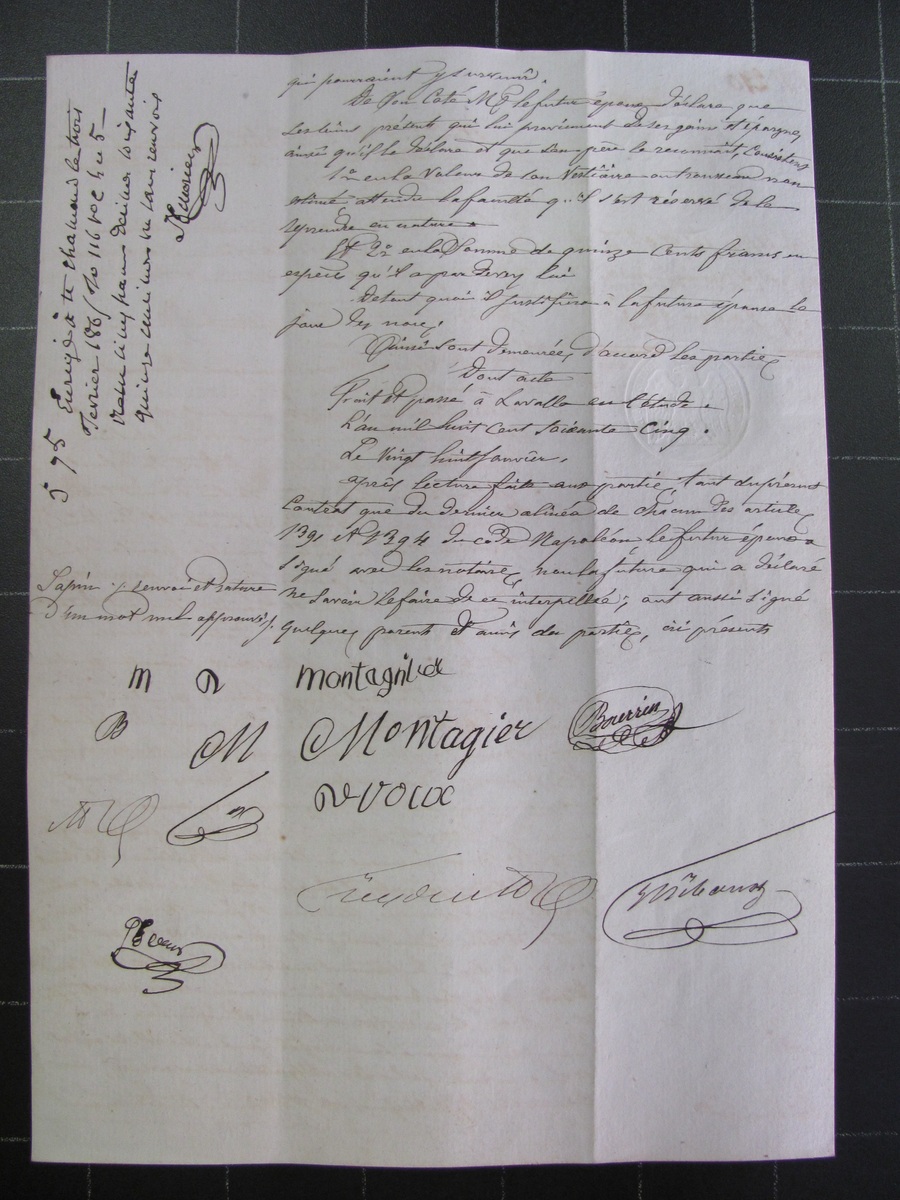 qui pourraient y survenir.
De son Coté Mr le futur époux déclare que
ses biens présents qui lui proviennent de ses gains et épargnes,
ainsi qu'il le déclare et que son père le reconnait, Consistent
1o en la Valeur de son Vestiaire ou trousseau non
estimé attendu la faculté qu'il s'est réservé de le
reprendre en nature
Et 2o en la Somme de quinze Cents francs en
espèces qu'il a par devers lui
De tout quoi il justifiera à la future épouse le
jour des noces.
Ainsi sont demeurées d'accord les parties
Dont acte
Fait et passé à Lavalla en l'étude.
L'an mil huit cent soixante Cinq.
Le Vingt huit Janvier.
après lecture faite aux parties, tant du présent
Contrat que du dernier alinéa de chacun des articles
1391 et 1394 du code Napoléon le futur époux a
signé avec les notaires, non la future qui a déclaré
ne Savoir le faire de ce interpellée; ont aussi signé
quelques parents et amis des parties, ici présents
renvoi et rature
D'un mot nul approuvés.
575 Enregistré à St Chamond le trois
fevrier 1865 fo 116 vo C 4 et 5
quinze centimes renvois
m
montagnieux
B
M
Montagier
Bourrin
devoux